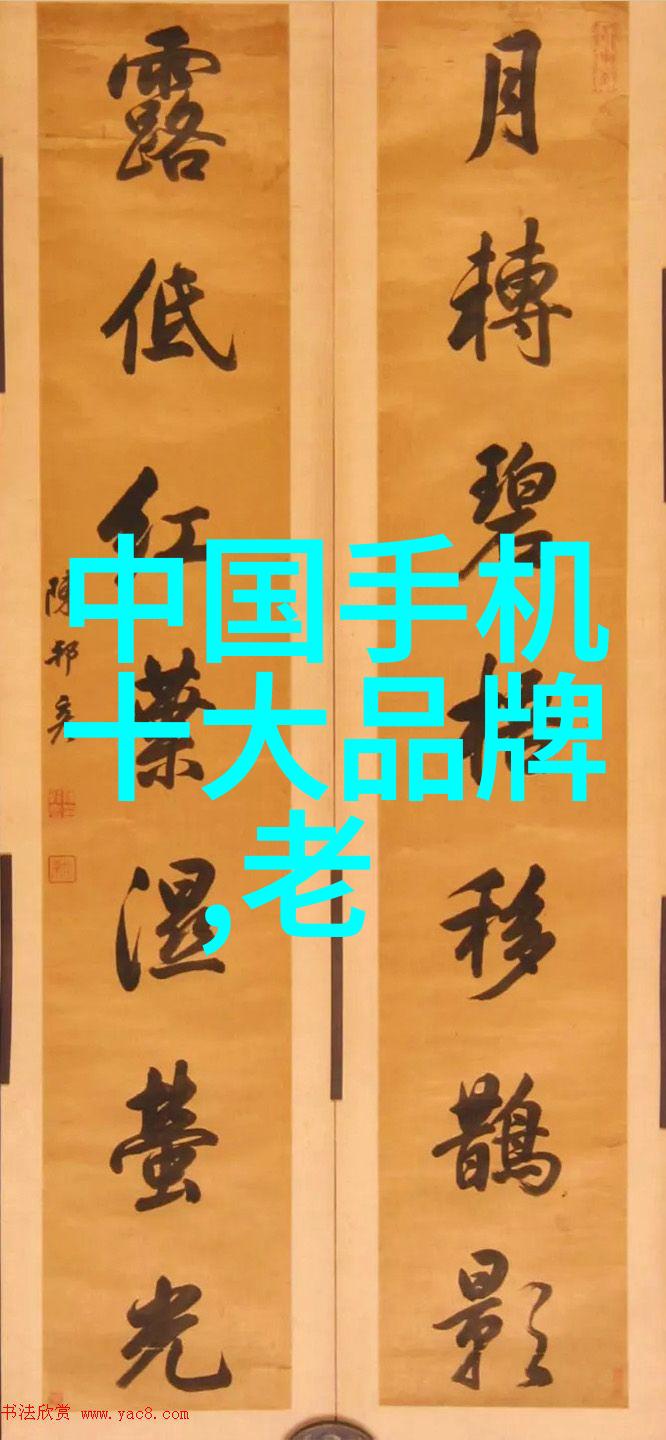 月轉碧梧移鵲影
露低紅葉濕螢光
陳邦彥
中国手机
十大品牌
,老
书法欣赏 www.yac8.com